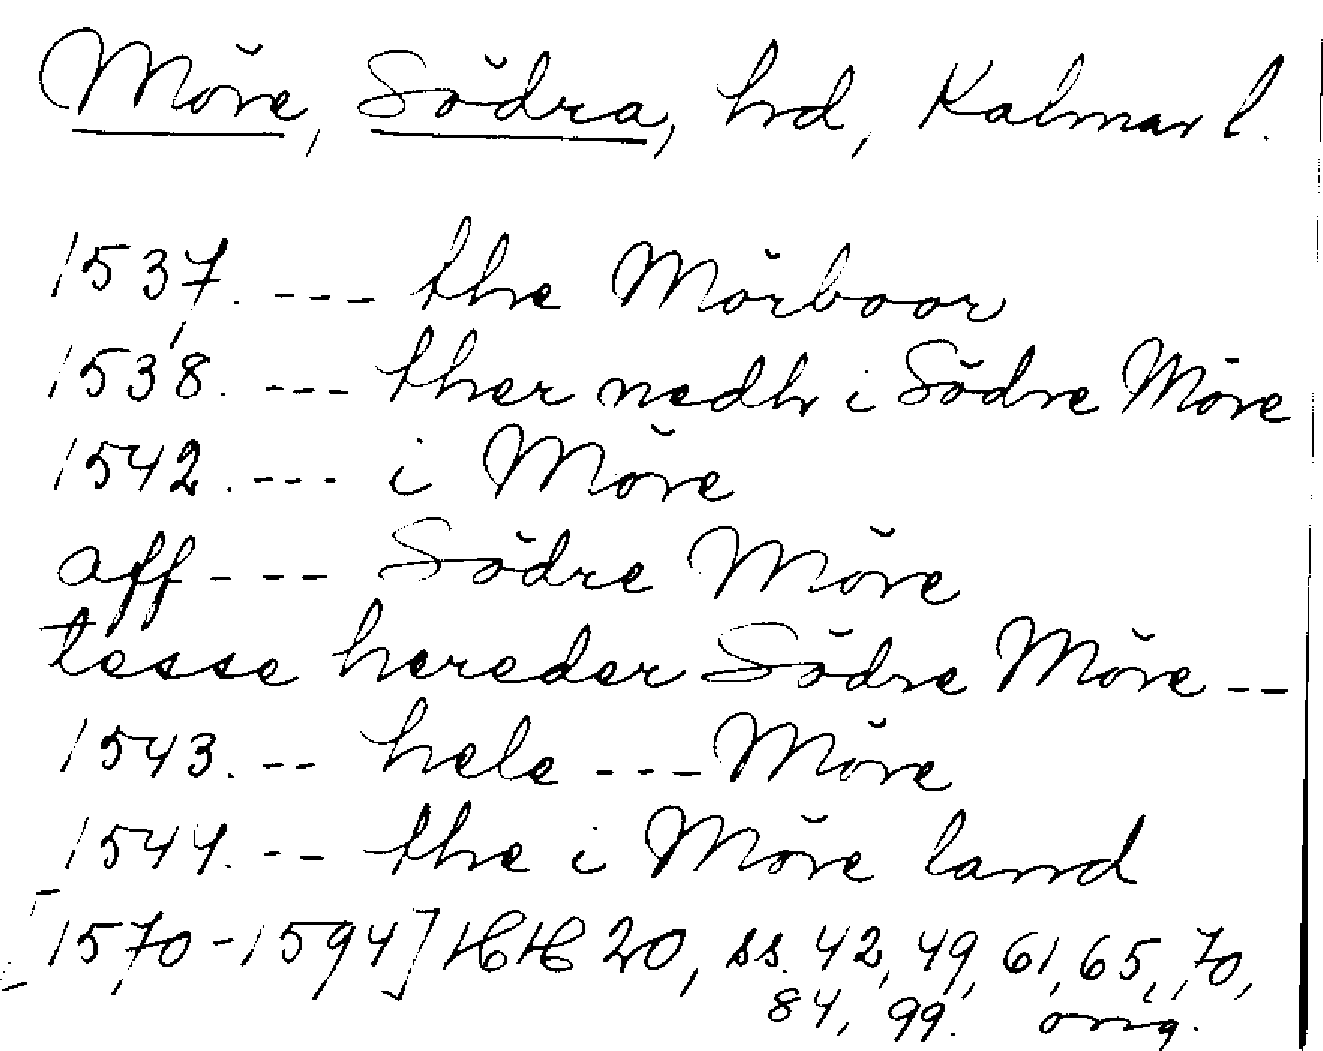 Möre, Södra, hrd, Kalmar l.
1537. --- the Mörboor
1538. --- ther nedh i Södre Möre
1542. --- i Möre
aff --- Södre Möre
tesse hereder Södre Möre --
1543. -- hele --- Möre
1544. -- the i Möre land
[1570-1594] HH 20, ss. 42, 49, 61, 65, 70,
84, 99. orig.